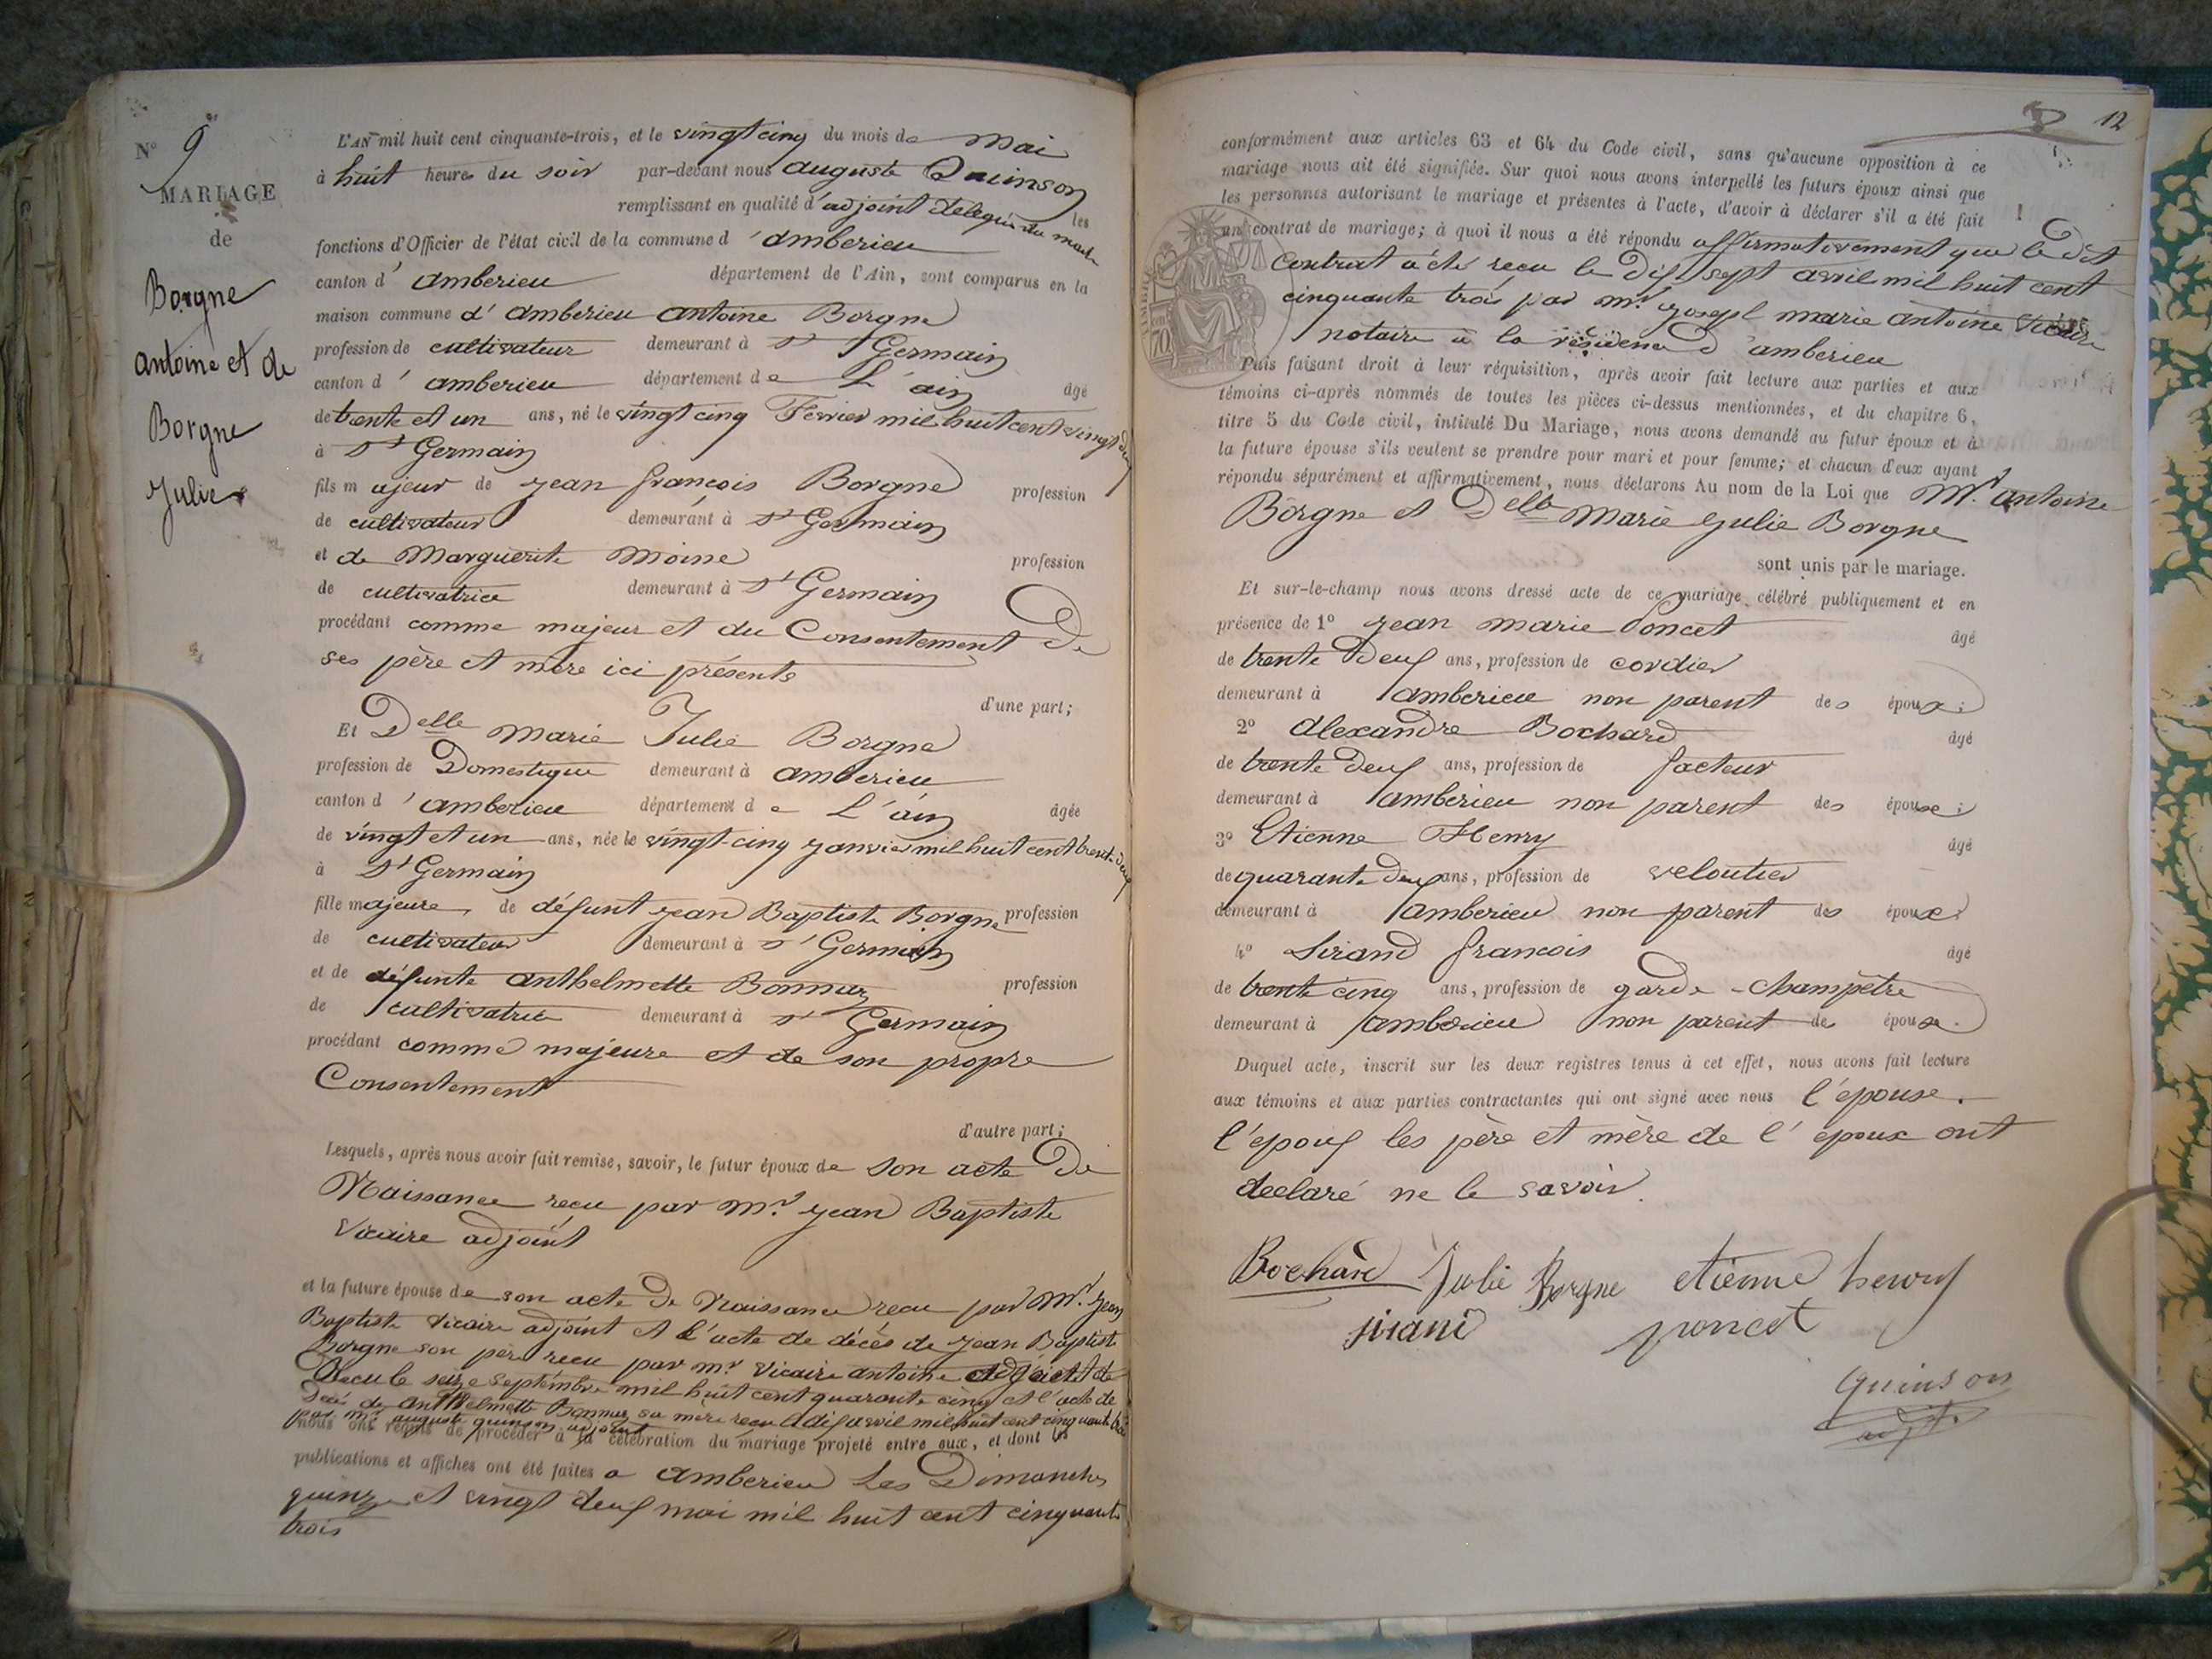 N° 9
MARIAGE
de
Borgne
antoine et de
Borgne
Julie
L'AN mil huit cent cinquante-trois, et le vingt cinq du mois de Mai
à huit heures du soir par-devant nous auguste Quinson
remplissant en qualité d'adjoint délégué du maire les
fonctions d'Officier de l'état civil de la commune d'amberieu
canton d'amberieu département de l'Ain, sont comparus en la
maison commune d'amberieu antoine Borgne
profession de cultivateur demeurant à St Germain
canton d'amberieu département de L'ain âgé
de trente et un ans, né le vingt cinq Février mil huit cent vingt deux
à St Germain
fils majeur de jean françois Borgne profession
de cultivateur demeurant à St Germain
et de Marguerite Moine profession
de cultivatrice demeurant à St Germain
procédant comme majeur et du Consentement De
ses père et mère ici présents
d'une part;
Et Delle Marie Julie Borgne
profession de Domestique demeurant à amberieu
canton d'amberieu département de L'ain âgée
de vingt et un ans, née le vingt-cinq janvier mil huit cent trente deux
à St Germain
fille majeure de défunt jean Baptiste Borgne profession
de cultivateur demeurant à St Germain
et de défunte anthelmette Bonnaz profession
de cultivatrice demeurant à St Germain
procédant comme majeure et de son propre
Consentement
d'autre part;
Lesquels, après nous avoir fait remise, savoir, le futur époux de son acte De
Naissance recu par Mr. jean Baptiste
Vicaire adjoint
et la future épouse de son acte De Naissance recu par Mr. jean
Baptiste Vicaire adjoint et de l'acte de décès de jean Baptiste
Borgne son père recu par mr Vicaire antoine
Recu le seize Septembre mil huit cent quarante cinq et l'acte de
Décès de anthelmette Bonnaz sa mère recu le dix avril mil huit cent cinquante trois
par Mr auguste quinson adjoint
nous ont requis de procéder à la célébration du mariage projeté entre eux, et dont les
publications et affiches ont été faites a amberieu Les Dimanches
quinze et vingt deux mai mil huit cent cinquante
trois
12
conformément aux articles 63 et 64 du Code civil, sans qu'aucune opposition à ce
mariage nous ait été signifiée. Sur quoi nous avons interpellé les futurs époux ainsi que
les personnes autorisant le mariage et présentes à l'acte, d'avoir à déclarer s'il a été fait
un contrat de mariage; à quoi il nous a été répondu affirmativement que le Dit
Contrat a été recu le Dix Sept avril mil huit cent
cinquante trois par Mr. joseph marie antoine Vicaire
notaire à la résidence d'amberieu
Puis faisant droit à leur réquisition, après avoir fait lecture aux parties et aux
témoins ci-après nommés de toutes les pièces ci-dessus mentionnées, et du chapitre 6,
titre 5 du Code civil, intitulé Du Mariage, nous avons demandé au futur époux et à
la future épouse s'ils veulent se prendre pour mari et pour femme; et chacun d'eux ayant
répondu séparément et affirmativement, nous déclarons Au nom de la Loi que Mr. antoine
Borgne et Delle Marie Julie Borgne
sont unis par le mariage.
Et sur-le-champ nous avons dressé acte de ce mariage célébré publiquement et en
présence de 1° jean marie Poncet âgé
de trente Deux ans, profession de cordier
demeurant à amberieu non parent des époux;
2° alexandre Bochard âgé
de trente deux ans, profession de facteur
demeurant à amberieu non parent des époux;
3° Etienne Henry âgé
de quarante deux ans, profession de veloutier
demeurant à amberieu non parent des époux;
4° Sirand françois âgé
de trente cinq ans, profession de garde-champètre
demeurant à amberieu non parent des époux.
Duquel acte, inscrit sur les deux registres tenus à cet effet, nous avons fait lecture
aux témoins et aux parties contractantes qui ont signé avec nous l'épouse.
l'epoux les père et mère de l'epoux ont
declaré ne le savoir.
Bochard Julie Borgne etienne henry
sirand poncet
Quinson
adjt